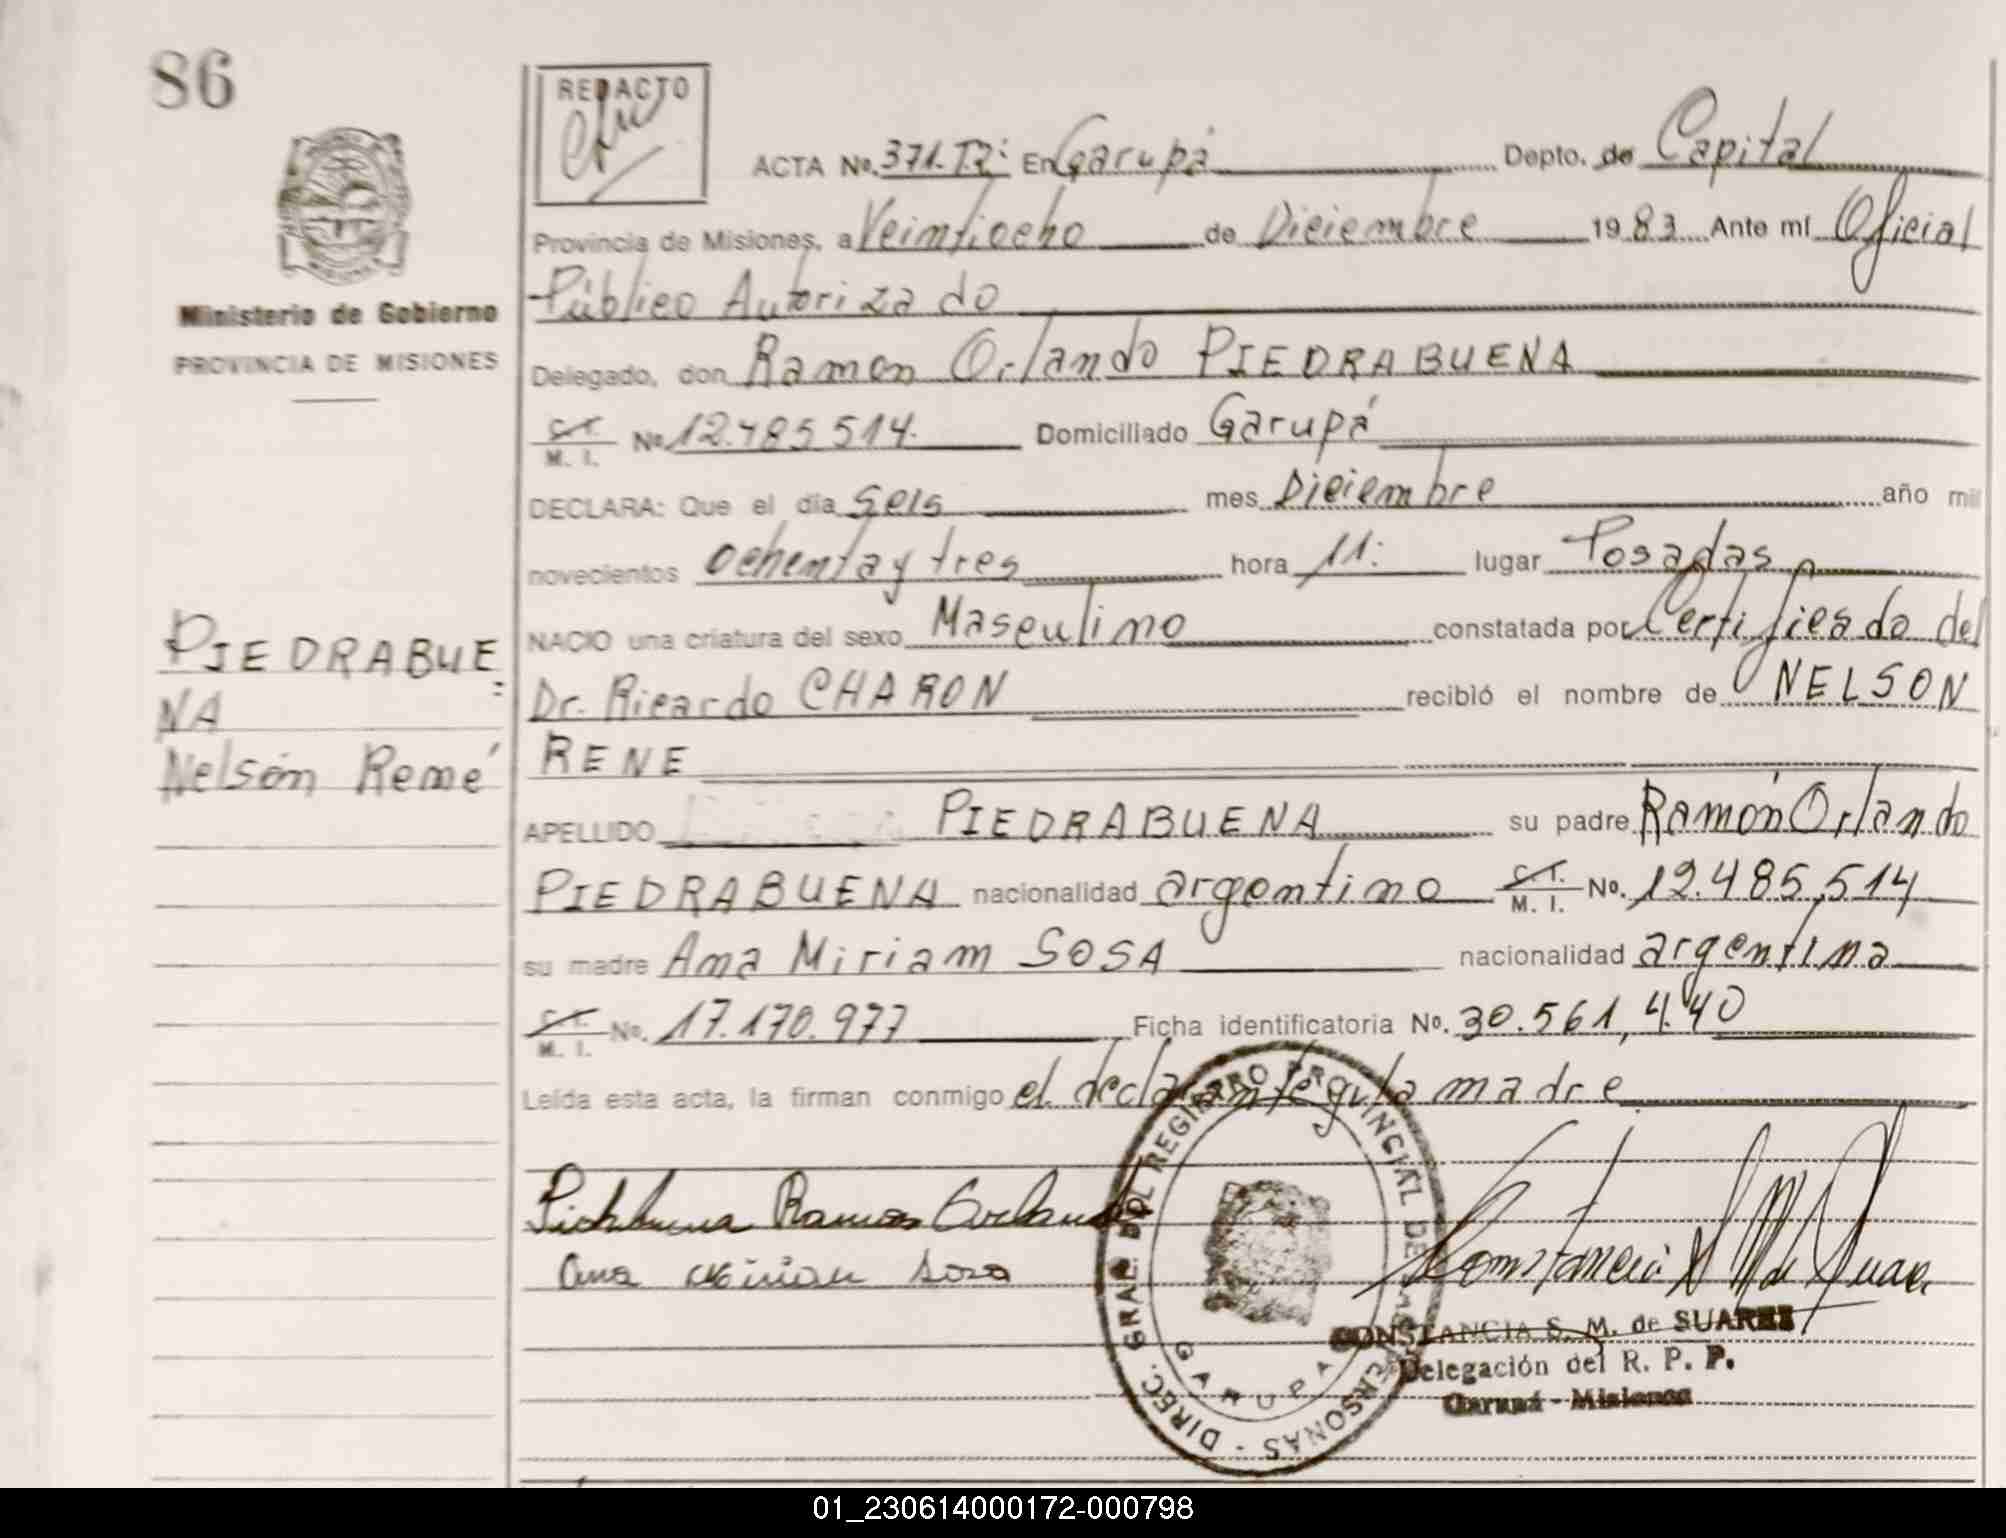 86
REDACTO
ACTA No. 371.Tº2: En Garupá Depto. de Capital
Provincia de Misiones, a Veintiocho de Diciembre 1983 Ante mí Oficial
Público Autorizado
Ministerio de Gobierno
PROVINCIA DE MISIONES
Delegado, don Ramon Orlando PIEDRABUENA
C.I.
M. I. No 12.485514. Domiciliado Garupá
DECLARA: Que el día Seis mes Diciembre año mil
novecientos ochenta y tres hora 11: lugar Posadas
NACIO una criatura del sexo Masculino constatada por Certificado del
Dr. Ricardo CHARON recibió el nombre de NELSON
RENE
PIEDRABUE
NA
Nelsón René
APELLIDO PIEDRABUENA su padre Ramón Orlando
PIEDRABUENA nacionalidad argentino C.I.
M. I. No. 12.485,514
su madre Ana Miriam SOSA nacionalidad argentina
C.I.
M. I. No. 17.170.977 Ficha identificatoria No. 30.561,440
Leída esta acta, la firman conmigo el declarante y la madre
Piedrabuena Ramon Orlando
Ana Mirian Sosa
DIREC. GRAL. DEL REGISTRO PROVINCIAL DE LAS PERSONAS -
GARUPA
Constancia S M de Suarez
CONSTANCIA S. M. de SUAREZ
Delegación del R. P. P.
Garupá - Misiones
01_230614000172-000798